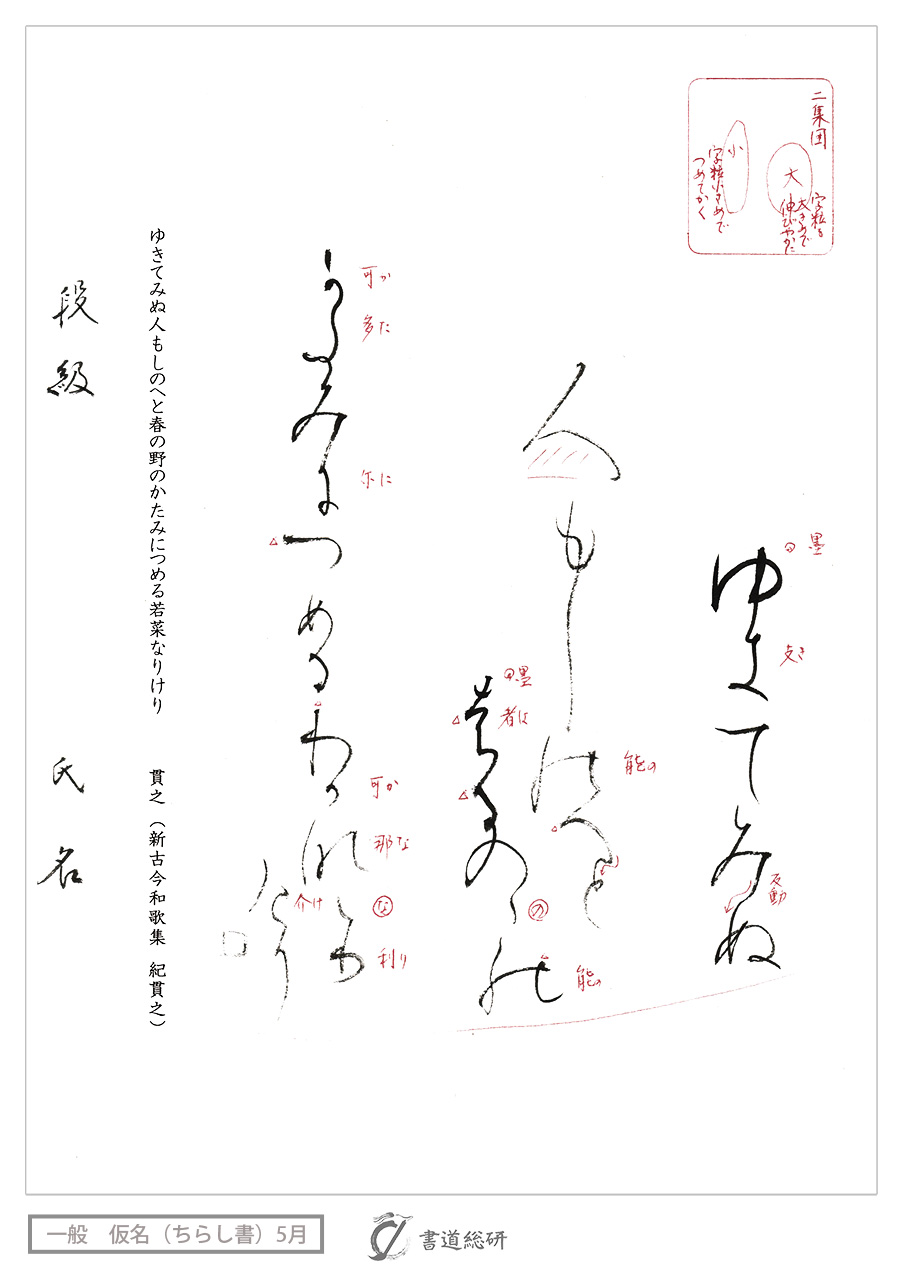 二集団
大
字粒を
大きめで
伸びやかに
小
字粒小さめで
つめてかく
墨
ゆきてみぬ
支き
反動
人もし能へと
能の
墨
者は
者るのゝ能
の
能の
可か
多た
尓に
可多みにつめるわ可那な利介り
可か
那な
な
介け
利り
ゆきてみぬ人もしのへと春の野のかたみにつめる若菜なりけり　貫之（新古今和歌集　紀貫之）
段級
氏名
一般　仮名（ちらし書）5月
書道総研